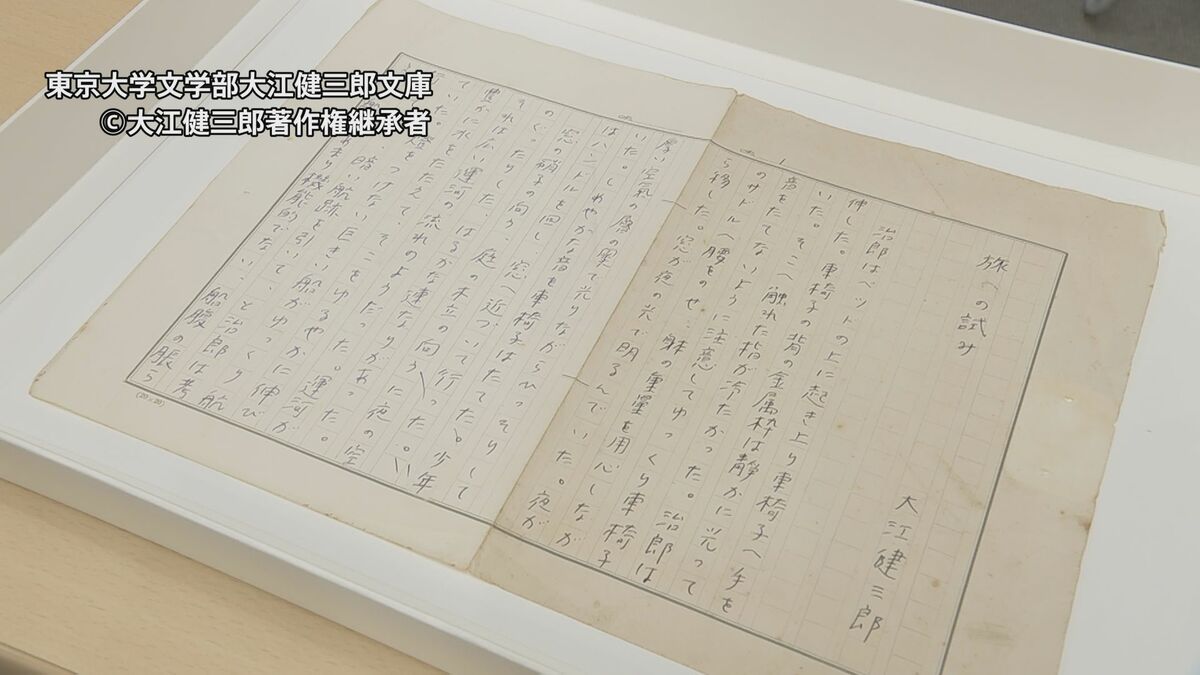 東京大学文学部大江健三郎文庫
©大江健三郎著作権継承者
1
旅への試み
大江健三郎
治郎はベットの上に起き上り車椅子へ手を
伸した。車椅子の背の金属枠は静かに光って
いた。そこへ触れた指が冷たかった。治郎は
音をたてないように注意してゆっくり車椅子
のサドルへ腰をのせ、躰の重量を用心しなが
ら移した。窓が夜の光で明るんでいた。夜が
厚い空氣の層の奥で光りながらひっそりして
いた。しめやかな音を車椅子はたてた。少年
はハンドルを回し、窓へ近づいて行った。
窓の硝子の向う、庭の木立の向うに夜の空
のぐったりした、はるかな連なりがあった。
それは広い運河の流れのようだった。運河が
豊かに水をたたえて、そこをゆるやかに伸び
ていた。燈をつけない巨きい船がゆっくり航
暗い航跡を引いて、と治郎は考
あまり機能的でない、船腹の脹ら
(20×20)